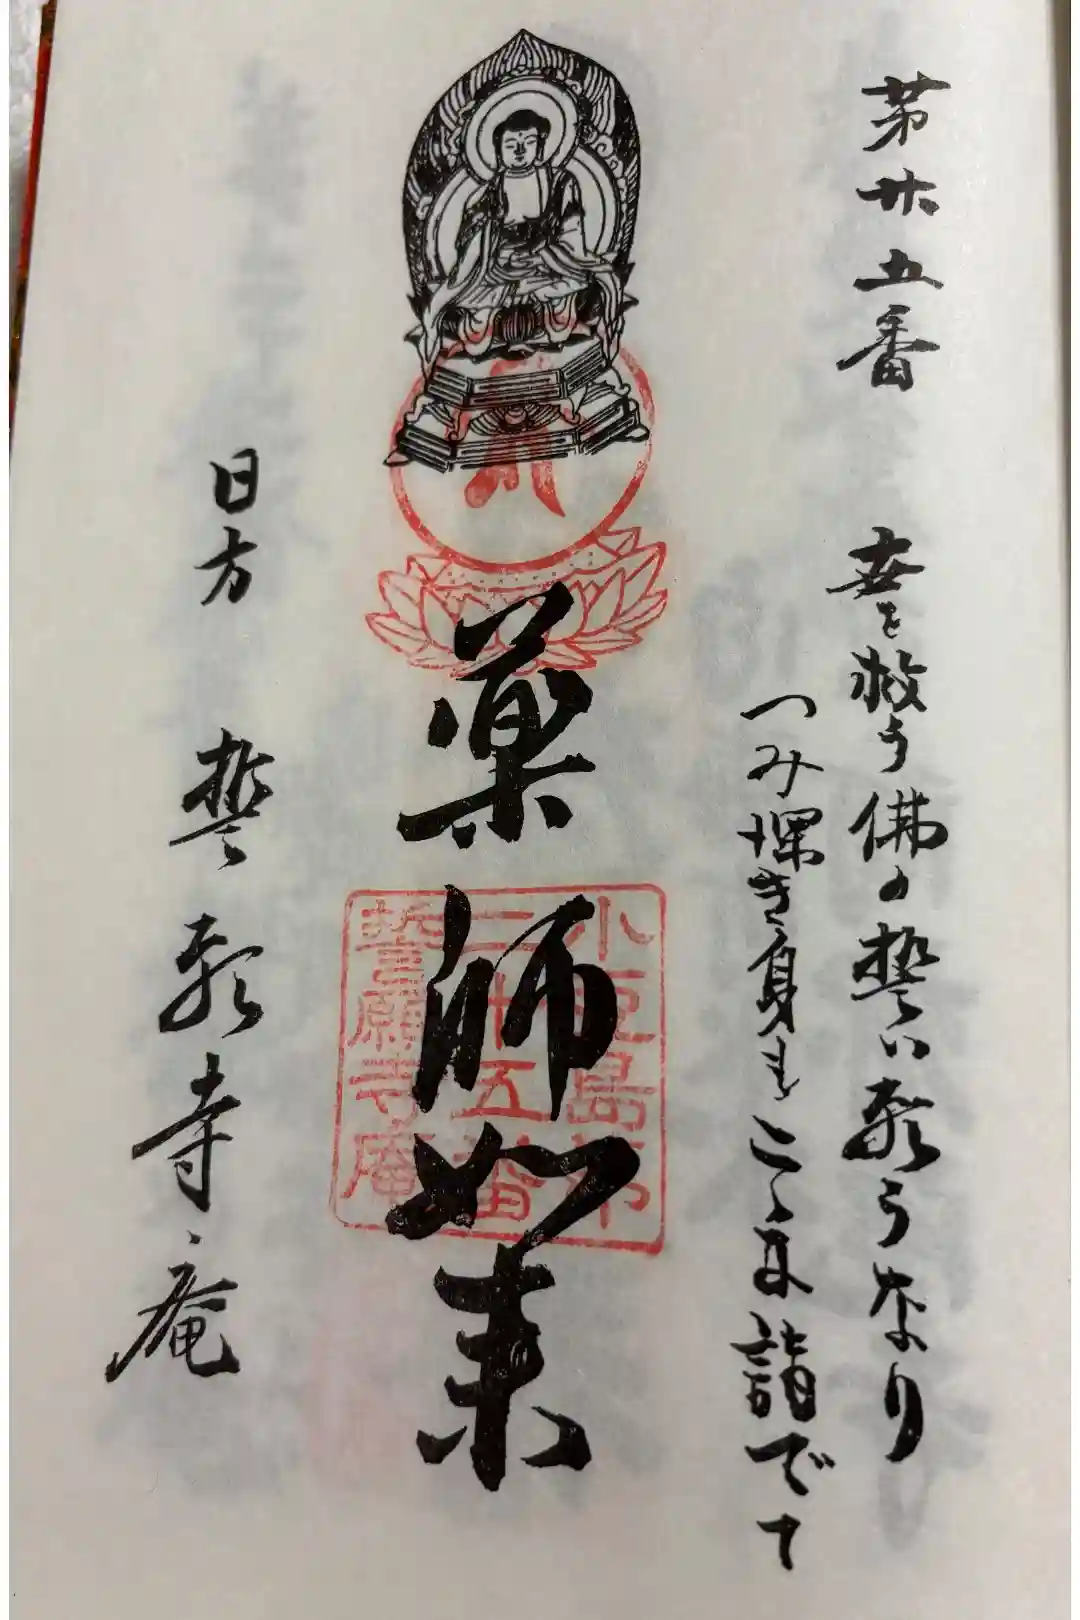 第廿五番 世を救う佛の誓い願うなり
つみ深き身もこゝに詣でて
薬師如来
小豆島第
二十五番
誓願寺庵
日方 誓願寺庵